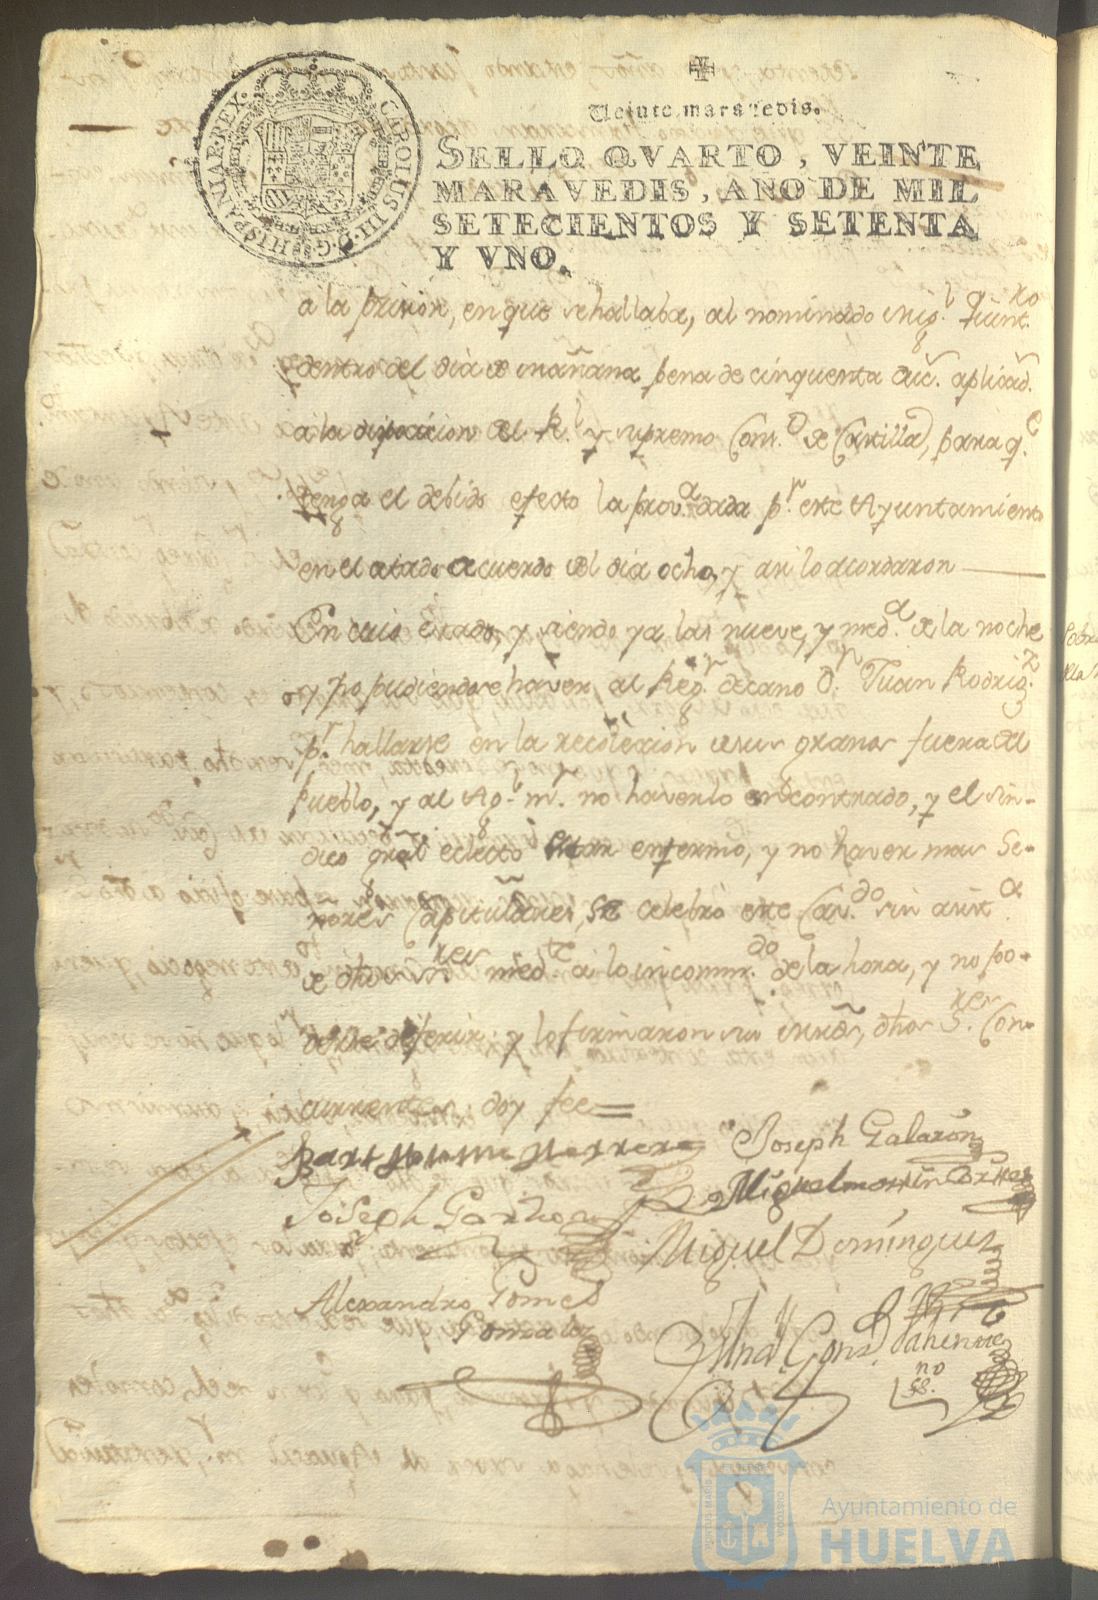 CAROLUS III D G HISPANIAR REX
Veinte maravedis.
SELLO QVARTO, VEINTE
MARAVEDIS, AÑO DE MIL
SETECIENTOS Y SETENTA
Y VNO.
a la prision, en que se hallaba, al nominado Mig.l
dentro del dia de mañana pena de cinquenta duc.s aplicad.s
a la disposicion del R.l y supremo Cons.o de Castilla, para q.e
tenga el debido efecto la prov.a dada p.r este Ayuntamiento
en el citado acuerdo del dia ocho, y asi lo acordaron
En cuio estado, y siendo ya las nueve, y med.a de la noche
y no pudiendose haver al Reg.r decano D.n Juan Rodrig.z
p.r hallarse en la recolexion de sus granos fuera del
Pueblo, y al Ag.l m.r no haverlo encontrado, y el sin-
dico gral electo estar enfermo, y no haver mas Se-
ñores Capitulares, se celebró este Cav.do sin asist.a
de dhos S.res med.te a lo incomm.do de la hora, y no po-
derse deferir; y lo firmaron sus mrds, dhos S.res Con-
currentes doy fee=
Bartholome Herrera
Joseph Galazon
Miguel Martin
Joseph Garzon
Miguel Dominguez
Alexandro Gomez
Gonzalez
no
SS.
Ayuntamiento de
HUELVA
PORTUS MARIS
CUSTODIA